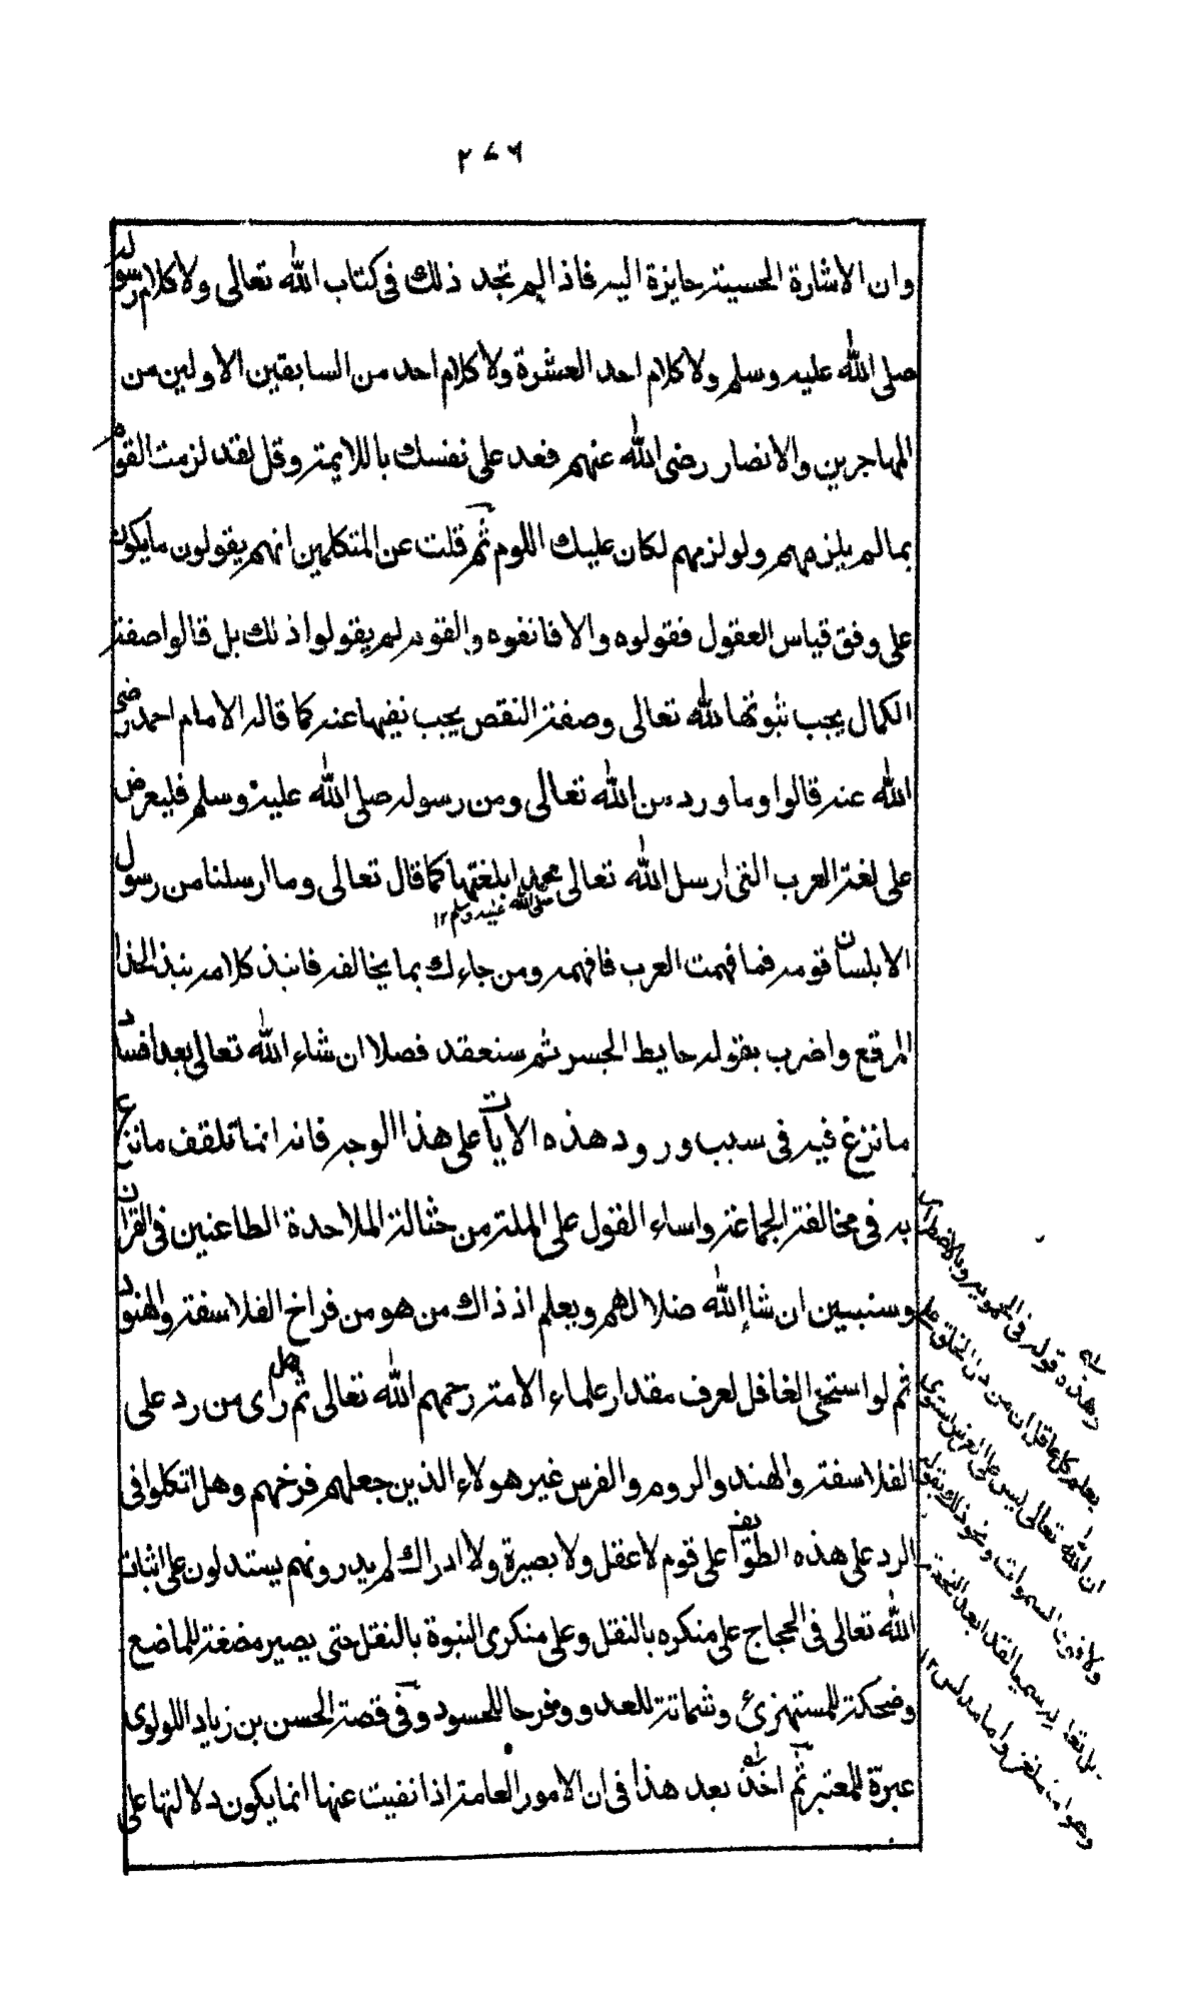 ٢٧٩
وان الاشارة الحسية جايزة اليه فاذا لم تجد ذلك فى كتاب الله تعالى ولا كلام رسوله
صلى الله عليه وسلم ولا كلام احد العشرة ولا كلام احد من السابقين الاولين من
المهاجرين والانصار رضى الله عنهم فعد على نفسك باللايمة وقل لقد لزمت القوم
بما لم يلزمهم ولو لزمهم لكان عليك اللوم ثم قلت عن المتكلمين انهم يقولون ما يكون
على وفق قياس العقول فقولوه والا فانفوه والقوم لم يقولوا ذلك بل قالوا صفة
الكمال يجب ثبوتها لله تعالى وصفة النقص يجب نفيها عنه كما قاله الامام احمد رضى
الله عنه قالوا وما ورد من الله تعالى ومن رسوله صلى الله عليه وسلم فليعرض
على لغة العرب التى ارسل الله تعالى محمدا بلغتها كما قال تعالى وما ارسلنا من رسول
صلى الله عليه وسلم ١٢
الا بلسان قومه فما فهمت العرب فافهمه ومن جاءك بما يخالفه فانبذ كلامه نبذ الحذا
المرقع واضرب بقوله حايط الجسر ثم سنعقد فصلا ان شاء الله تعالى بعد افساد
ما نزغ فيه فى سبب ورود هذه الايات على هذا الوجه فانه انما تلقف ما نزغ
به فى مخالفة الجماعة واساء القول على الملة من حثالة الملاحدة الطاعنين فى القران
وسنبين ان شاالله ضلالهم ويعلم اذ ذاك من هو من فراخ الفلاسفة والهنود
ثم لو استحى الغافل لعرف مقدار علماء الامة رحمهم الله تعالى ثم هل راى من رد على
الفلاسفة والهند والروم والفرس غير هولاء الذين جعلهم فرخهم وهل اتكلوا فى
الرد على هذه الطوايف على قوم لا عقل ولا بصيرة ولا ادراك لم يدرونهم يستدلون على اثبات
الله تعالى فى الحجاج على منكره بالنقل وعلى منكرى النبوة بالنقل حتى يصير مضغة للماضع
وضحكة للمستهزئ وشماتة للعدو وفرحا للحسود وفى قصة الحسن بن زياد اللولوى
عبرة للمعتبر ثم اخذ بعد هذا فى ان الامور العامة اذا نفيت عنها انما يكون دلالتها على
وهذه قوله فى الحموية وبالاضطرار
يعلم كل عاقل ان من دل الخلق على
ان الله تعالى ليس على العرش استوى
ولا فوق السموات ونحو ذلك بقوله